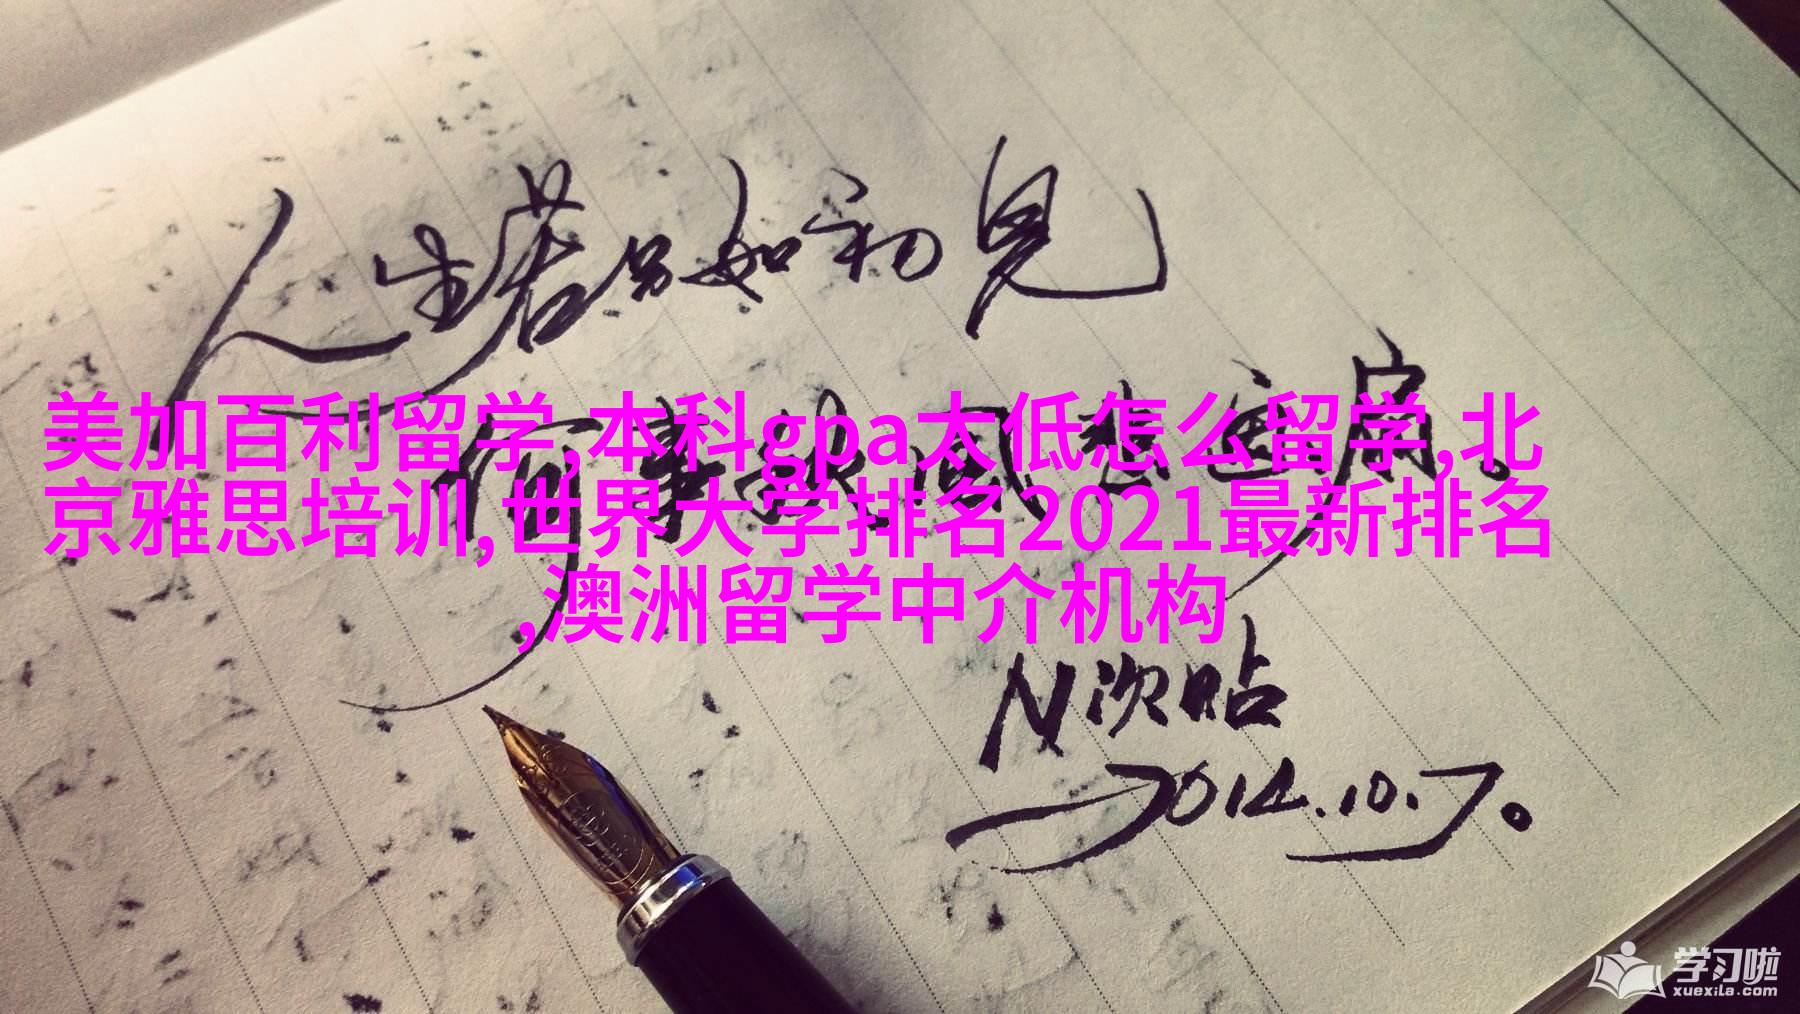 人生若只如初见
何事秋风悲画扇。
美加百利留学,本科gpa太低怎么留学,北
京雅思培训,世界大学排名2021最新排名
,澳洲留学中介机构
N次贴
2014.10.7。
学习啦
xuexila.com